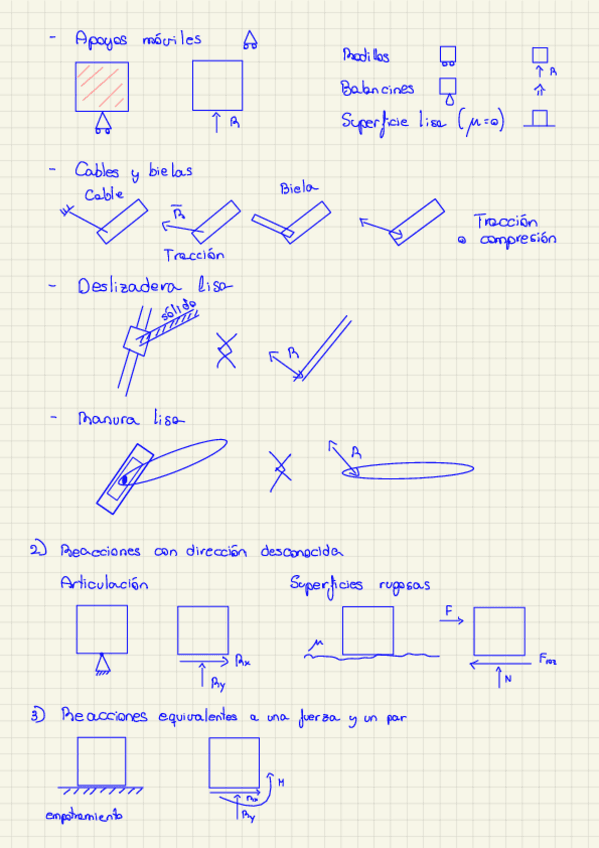 - Apoyos móviles
Rodillos
R
R
Balancines
Superficie lisa (μ=0)
- Cables y bielas
Cable
Biela
R
Tracción
Tracción
o compresión
- Deslizadera lisa
sólido
R
- Ranura lisa
R
2) Reacciones con dirección desconocida
Articulación
Superficies rugosas
Rx
Ry
μ
F
Froz
N
3) Reacciones equivalentes a una fuerza y un par
M
Rx
Ry
empotramiento